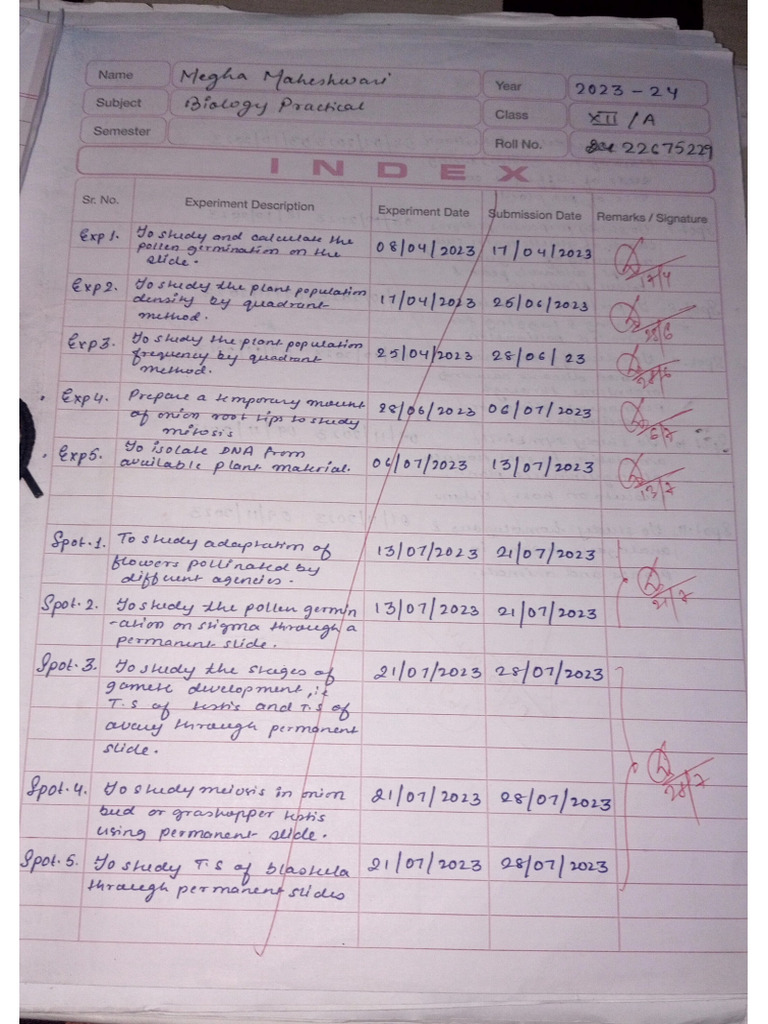 Name Megha Maheshwari Year 2023-24
Subject Biology Practical Class XII/A
Semester Roll No. 22675229
INDEX
Sr. No. Experiment Description Experiment Date Submission Date Remarks / Signature
Exp 1. To study and calculate the 08/04/2023 17/04/2023
pollen germination on the
slide.
17/4
Exp 2. To study the plant population 17/04/2023 25/06/2023
density by quadrant
method.
Exp 3. To study the plant population 25/04/2023 28/06/23
frequency by quadrant
method.
28/6
Exp 4. Prepare a temporary mount 28/06/2023 06/07/2023
of onion root tips to study
mitosis
6/7
Exp 5. To isolate DNA from 06/07/2023 13/07/2023
available plant material.
13/7
Spot.1. To study adaptation of 13/07/2023 21/07/2023
flowers pollinated by
different agencies.
21/7
Spot.2. To study the pollen germin 13/07/2023 21/07/2023
-ation on stigma through a
permanent slide.
Spot.3. To study the stages of 21/07/2023 28/07/2023
gamete development, i.e
T.S of testis and T.S of
ovary through permanent
slide.
28/7
Spot.4. To study meiosis in onion 21/07/2023 28/07/2023
bud or grashopper testis
using permanent slide.
Spot.5. To study T.S of blastula 21/07/2023 28/07/2023
through permanent slides